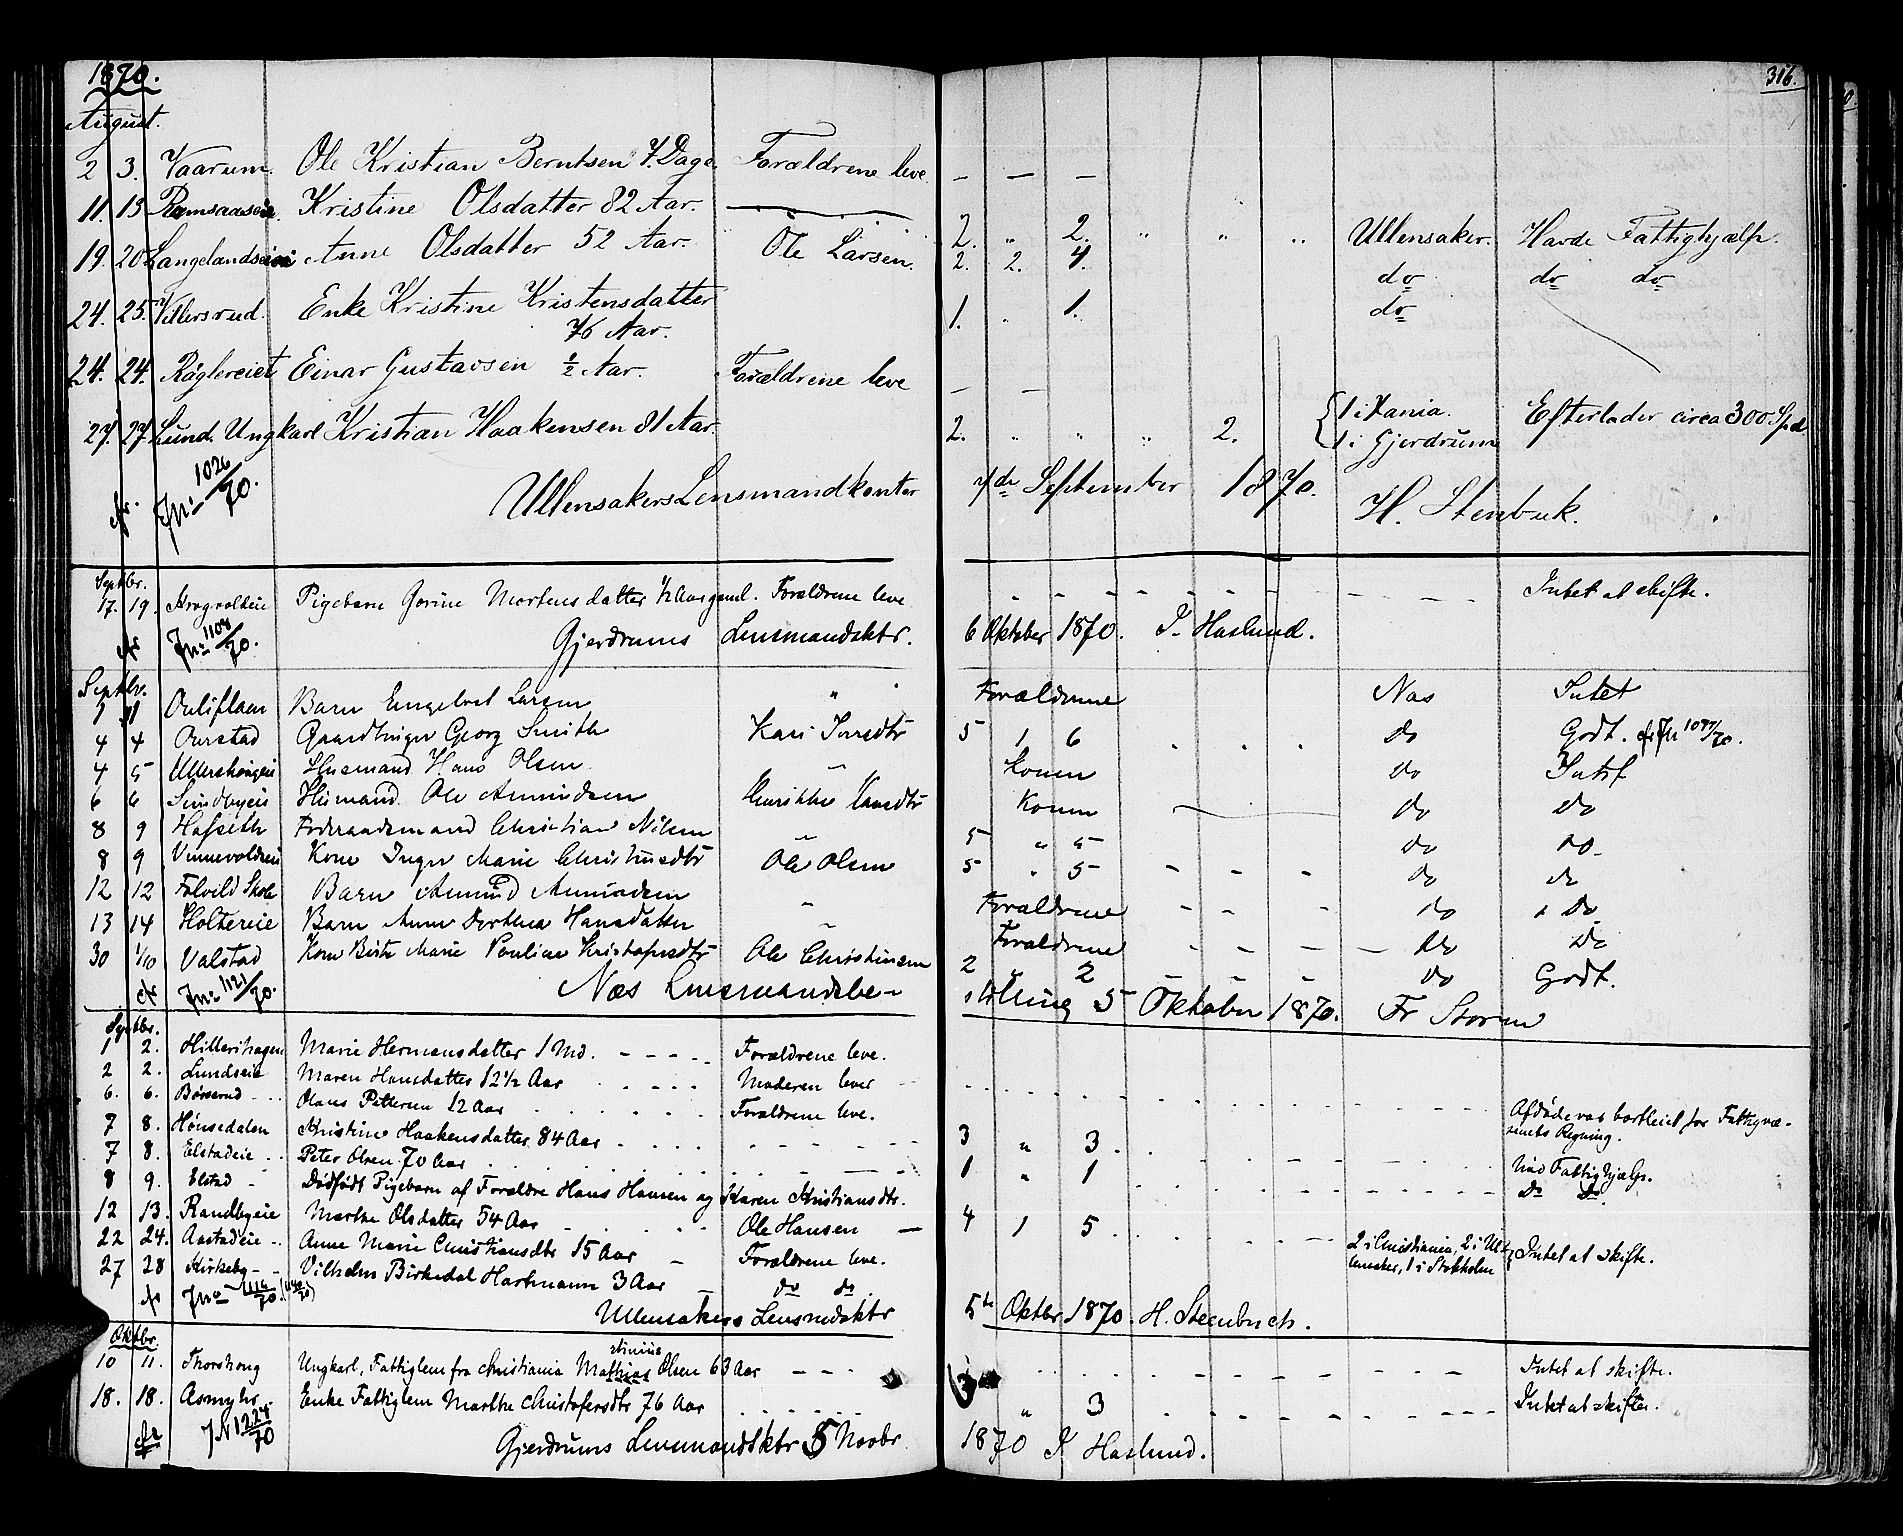 1870. 316.
August.
2 3. Vaarum. Ole Kristian Berntsen 7. Dage Forældrene leve. — — —
11. 13 Ramsaaseie. Kristine Olsdatter 82 Aar. — 2. " 2. " " " Ullensaker. Havde Fattighjælp.
19. 20 Langelandseie Anne Olsdatter 52 Aar. Ole Larsen. 2. 2. 4. do do do
24. 25. Villersrud. Enke Kristine Kristensdatter 1. " 1. do
76 Aar.
24. 24. Röglereiet Einar Gustavsen ½ Aar. Forældrene leve — —
27. 27. Lund. Ungkarl Kristian Haakensen 81 Aar. 2. " " " 2. { 1 i Xania. Efterlader circa 300 Spd.
1 i Gjerdrum
cfr. Jn: 1026/70. Ullensakers Lensmandkontor 7de September 1870. H. Stenbuk.
Septbr.
17. 19. Aragvoldeie Pigebarn Gorine Mortensdatter ½ Aar gaml. Forældrene leve Intet at skifte.
cfr Jno 1108/70. Gjerdrums Lensmandsktr. 6 Oktober 1870. I. Haslund.
Septbr.
1 11 Barn Engebret Larsen " Forældrene Næs Intet
4 4 Ourstad Gaardbruger Georg Smith Kari Iversdtr 5 1 6 do Godt. cfr Jn 1097/70.
4 5 Ullershougeie Husmand Hans Olsen " Konen do Intet
6 6 Sundbyeie Husmand Ole Amundsen Henrikke Hansdtr Konen do do
8 9 Hafseth Foderaadsmand Christian Nilsen " 5 " 5 do do
8 9 Vinnevoldeie Kone Inger Marie Christiansdtr Ole Olsen 5 " 5 do do
12 12 Folvild Skole Barn Amund Amundsen " Forældrene do do
13 14 Holtereie Barn Anne Dorthea Hansdatter " Forældrene do do
30 1/10 Valstad Kone Birte Marie Pauline Kristofersdtr Ole Christiansen 2 2 do Godt.
cfr Jno 1121/70. Næs Lensmandsbe- stilling 5 Oktober 1870. Fr Storm
Septbr.
1 2. Hillerihagen Marie Hermansdatter 1 Md. Forældrene leve.
2 2. Lundseie Maren Hansdatter 12½ Aar Moderen lever
6. 6. Børserud Olaus Pettersen 12 Aar Forældrene leve.
7 8. Hønsedalen Kristine Haakensdatter 84 Aar 3 " 3 Afdøde var bortleiet for Fattigvæ-
senets Regning.
7 8. Elstadeie Peter Olsen 70 Aar 1 " 1 Nød Fattighjælp.
8 9. Elstad Dødfødt Pigebarn af Forældre Hans Hansen og Karen Kristiansdtr. do do
12 13. Randbyeie Marthe Olsdatter 54 Aar Ole Hansen — 4 1 5 2 i Christiania, 2 i Ul-
lensaker, 1 i Stokholm } Intet at skifte.
22 24. Aastadeie Anne Marie Christiansdtr 15 Aar Forældrene leve.
27 28 Kirkeby Vilhelm Birkedal Hartmann 3 Aar do do
cfr Jno 1116/70. Ullensakers Lensmdsktr 5te Oktbr 1870. H. Steenbuch.
Oktbr.
10 11. Thorshoug Ungkarl, Fattiglem fra Christiania Mathias Olsen 63 Aar Intet at skifte.
18. 18. Asmyhr Enke Fattiglem Marthe Christofersdtr 76 Aar " 3 Intet at skifte.
cfr J N 1224/70 Gjerdrums Lensmandsktr 5 Novbr 1870 I Haslund.